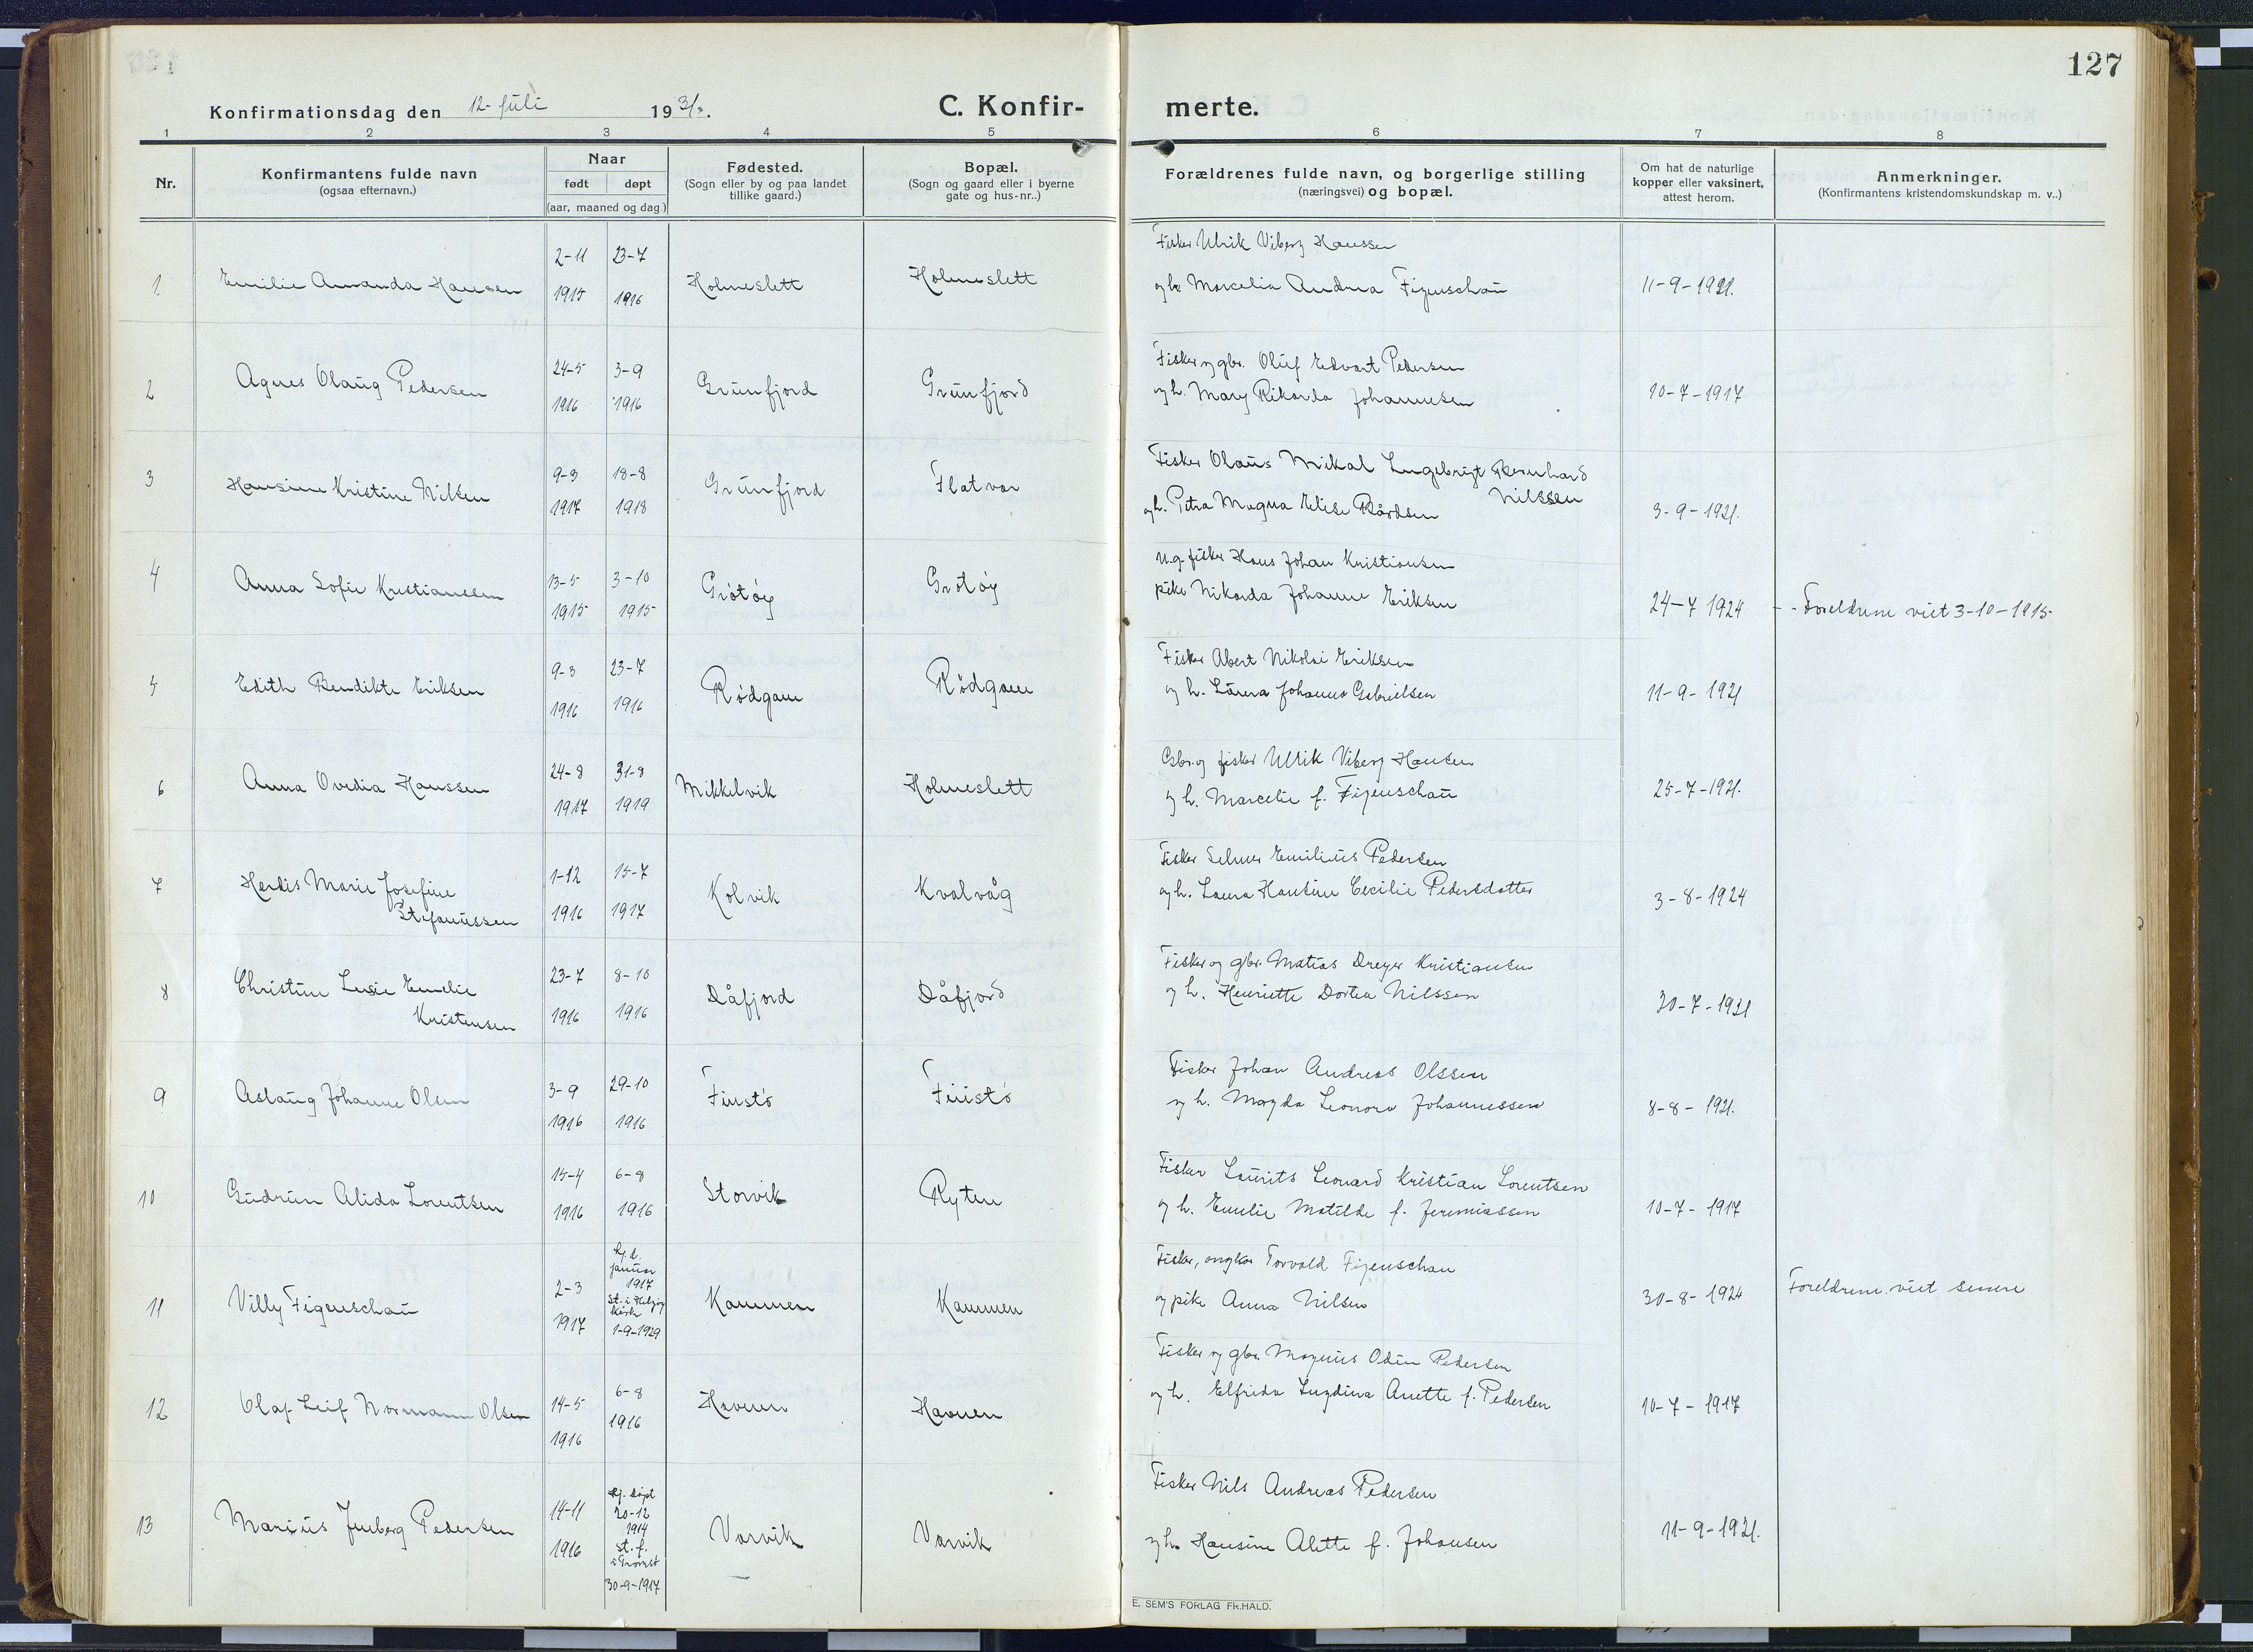 127
Konfirmationsdag den 12-Juli 1931.
C. Konfirmerte.
1 2 3 4 5 6 7 8
Nr.
Konfirmantens fulde navn
(ogsaa efternavn.)
Naar
født døpt
(aar, maaned og dag.)
Fødested.
(Sogn eller by og paa landet
tillike gaard.)
Bopæl.
(Sogn og gaard eller i byerne
gate og hus-nr..)
Forældrenes fulde navn, og borgerlige stilling
(næringsvei) og bopæl.
Om hat de naturlige
kopper eller vaksinert,
attest herom.
Anmerkninger.
(Konfirmantens kristendomskundskap m. v..)
1 Emilie Amanda Hansen 2-11 1915 23-7 1916 Holmeslett Holmeslett
Fisker Ulrik Viberg Hanssen
og h. Marcelia Andrea Figenschau 11-9-1921.
2 Agnes Olaug Pedersen 24-5 1916 3-9 1916 Grunfjord Grunfjord
Fisker og gbr. Oluf Edvart Pedersen
og h. Mary Rikarda Johannesen 10-7-1917
3 Hansine Kristine Nilsen 9-3 1917 18-8 1918 Grunfjord Flatvar
Fisker Olaus Mikal Ingebrigt Bernhard
Nilssen
og h. Petra Magna Elise Bårdsen 3-9-1921.
4 Anna Sofie Kristianssen 13-5 1915 3-10 1915 Grøtøy Grøtøy
Ug. fisker Hans Johan Kristiansen
pike Nikarda Johanne Eriksen 24-7 1924 -- Foreldrene viet 3-10-1915.
5 Edith Bendikte Eriksen 9-3 1916 23-7 1916 Rødgam Rødgam
Fisker Abert Nikolai Eriksen
og h. Laura Johanna Gabrielsen 11-9-1921
6 Anna Ovedia Hanssen 24-8 1917 31-8 1919 Mikkelvik Holmeslett
Gbr. og fisker Ulrik Viberg Hansen
og h. Marcelie f. Figenschau 25-7-1921.
7 Herdis Marie Josefine
Stefanussen 1-12 1916 15-7 1917 Kolvik Kvalvåg
Fisker Selmer Emilius Pedersen
og h. Laura Hansine Cecilie Pedersdatter 3-8-1924
8 Christine Lusie Emelie
Kristensen 23-7 1916 8-10 1916 Dåfjord Dåfjord
Fisker og gbr. Matias Dreyer Kristiansen
og h. Henriette Dortea Nilssen 30-7-1921
9 Aslaug Johanne Olsen 3-9 1916 29-10 1916 Finstø Finstø
Fisker Johan Andreas Olssen
og h. Magda Leonora Johannessen 8-8-1921.
10 Gudrun Alida Lorentsen 15-4 1916 6-8 1916 Storvik Ryten
Fisker Laurits Leonard Kristian Lorentsen
og h. Emelie Matilde f. Jeremiassen 10-7-1917
11 Villy Figenschau 2-3 1917 Hj. d.
januar
1917
st. i Helgøy
kirke
1-9-1929 Kammen Kammen
Fisker, ungkar Torvald Figenschau
og pike Anna Nilsen 30-8-1924 Foreldrene viet senere
12 Olaf Leif Normann Olsen 14-5 1916 6-8 1916 Havnen Havnen
Fisker og gbr. Magnus Odin Pedersen
og h. Elfrida Ingdina Anette f. Pedersen 10-7-1917
13 Marius Juberg Pedersen 14-11 1916 Hj. døpt
20-12
1914
st. f.
i Tromst
30-9-1917 Vorvik Vorvik
Fisker Nils Andreas Pedersen
og h. Hansine Alette f. Johansen 11-9-1921.
E. SEM'S FORLAG FR.HALD.